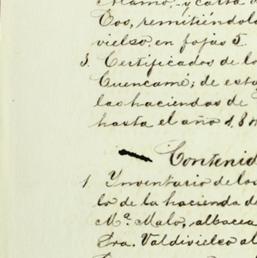 Alamo, y carta d
tos, remitiéndolo
vielso, en fojas 5.
3. Certificados de lo
Cuencamé; de esta
las haciendas de
hasta el año 18
Contenid
1 Ynventario de los
lo de la hacienda d
Mª. Malo, albacea
Sra. Valdivielso al